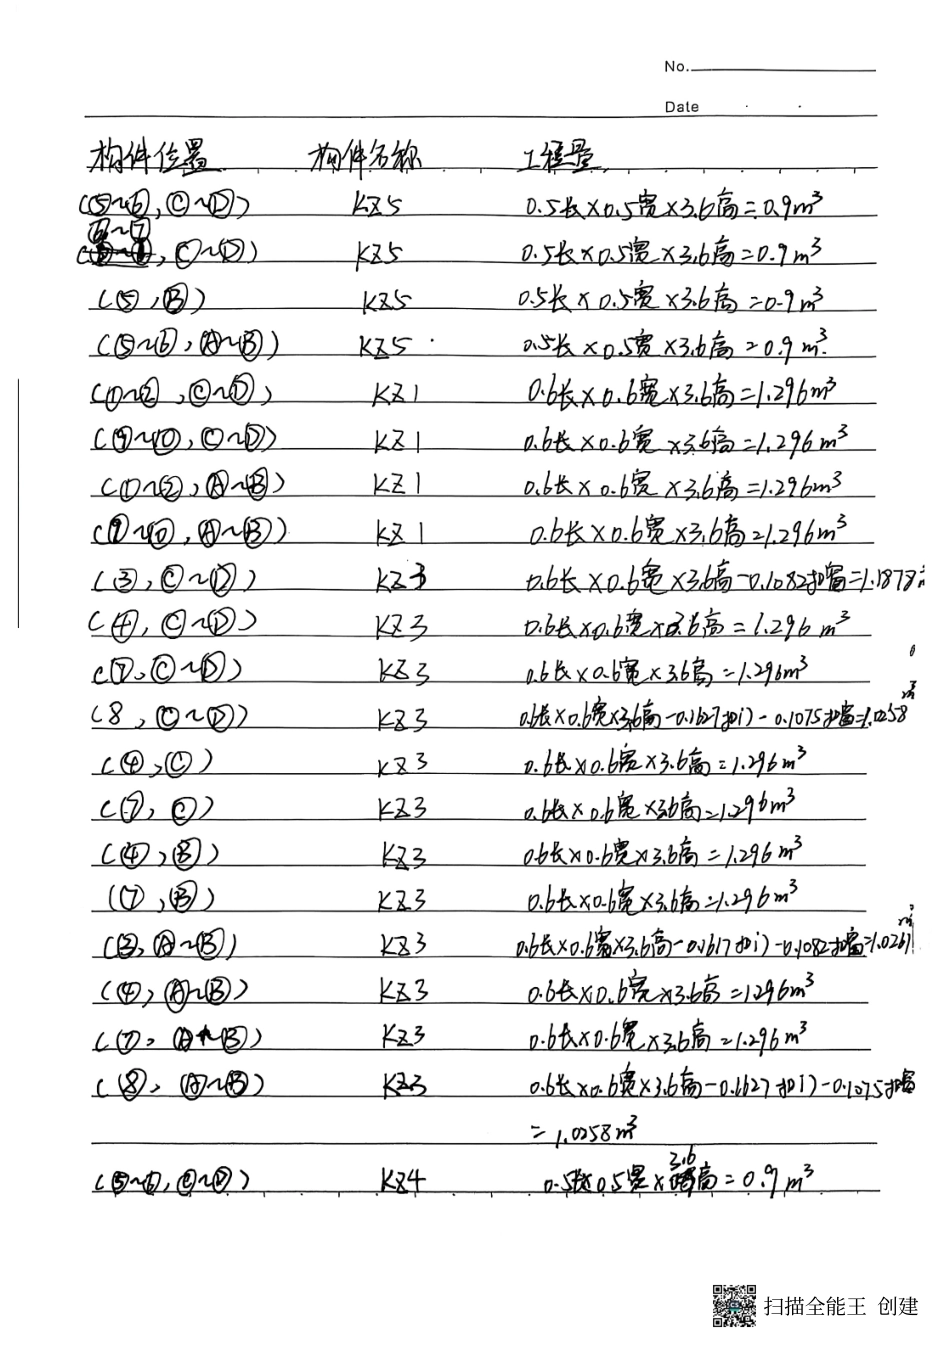 No.
Date
构件位置 构件名称 工程量
(⑤~⑥,Ⓒ~Ⓓ) KZ5 0.5长×0.5宽×3.6高=0.9m³
⑥~⑦
,Ⓒ~Ⓓ) KZ5 0.5长×0.5宽×3.6高=0.9m³
(⑤,Ⓑ) KZ5 0.5长×0.5宽×3.6高=0.9m³
(⑤~⑥,Ⓐ~Ⓑ) KZ5 0.5长×0.5宽×3.6高=0.9m³.
(①~②,Ⓒ~Ⓓ) KZ1 0.6长×0.6宽×3.6高=1.296m³
(⑨~⑩,Ⓒ~Ⓓ) KZ1 0.6长×0.6宽×3.6高=1.296m³
(①~②,Ⓐ~Ⓑ) KZ1 0.6长×0.6宽×3.6高=1.296m³
(⑨~⑩,Ⓐ~Ⓑ) KZ1 0.6长×0.6宽×3.6高=1.296m³
(③,Ⓒ~Ⓓ) KZ3 0.6长×0.6宽×3.6高-0.1082扣窗=1.1878
(④,Ⓒ~Ⓓ) KZ3 0.6长×0.6宽×3.6高=1.296m³
(⑦,Ⓒ~Ⓓ) KZ3 0.6长×0.6宽×3.6高=1.296m³
(8,Ⓒ~Ⓓ) KZ3 0.6长×0.6宽×3.6高-0.1627扣门-0.1075扣窗=1.0258m³
(④,Ⓒ) KZ3 0.6长×0.6宽×3.6高=1.296m³
(⑦,Ⓒ) KZ3 0.6长×0.6宽×3.6高=1.296m³
(④,Ⓑ) KZ3 0.6长×0.6宽×3.6高=1.296m³
(⑦,Ⓑ) KZ3 0.6长×0.6宽×3.6高=1.296m³
(③,Ⓐ~Ⓑ) KZ3 0.6长×0.6宽×3.6高-0.1617扣门-0.1082扣窗=1.0261m³
(④,Ⓐ~Ⓑ) KZ3 0.6长×0.6宽×3.6高=1.296m³
(⑦,Ⓐ~Ⓑ) KZ3 0.6长×0.6宽×3.6高=1.296m³
(⑧,Ⓐ~Ⓑ) KZ3 0.6长×0.6宽×3.6高-0.1627扣门-0.1075扣窗
=1.0258m³
(⑤~⑥,Ⓒ~Ⓓ) KZ4 0.5长×0.5宽×3.6高=0.9m³
扫描全能王 创建